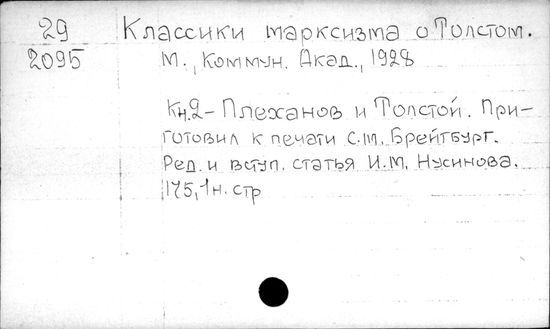 29 Классики марксизма о Толстом.
2095 М., Коммун. Акад., 1928
Кн.2 - Плеханов и Толстой. При-
готовил к печати С.М. Брейтбург.
Ред. и вступ. статья И.М. Нусинова.
175, 1 н. стр